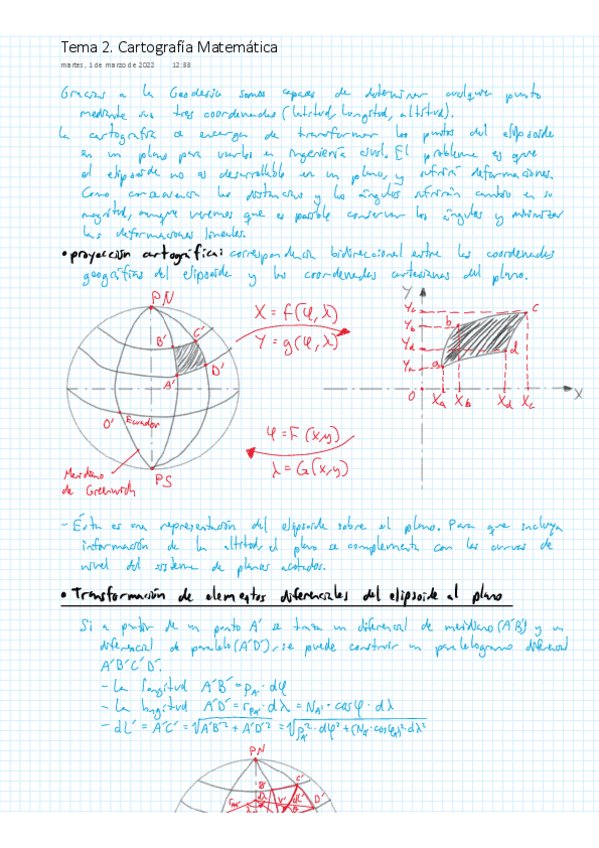 Tema 2. Cartografía Matemática
martes, 1 de marzo de 2022 12:33
Gracias a la Geodesia somos capaces de determinar cualquier punto
mediante sus tres coordenadas (latitud, longitud, altitud).
La cartografía se encarga de transformar los puntos del elipsoide
en un plano para usarlos en ingeniería civil. El problema es que
el elipsoide no es desarrollable en un plano, y sufrirá deformaciones.
Como consecuencia las distancias y los ángulos sufrirán cambio en su
magnitud, aunque veremos que es posible conservar los ángulos y minimizar
las deformaciones lineales.
• proyección cartográfica: correspondencia bidireccional entre las coordenadas
geográficas del elipsoide y las coordenadas cartesianas del plano.
PN
B' C'
A' D'
O' Ecuador
Meridiano
de Greenwich
PS
X = f(φ, λ)
Y = g(φ, λ)
φ = F(x,y)
λ = G(x,y)
Y
Yc
Yb
Yd
Ya
a b c d
O Xa Xb Xd Xc X
- Ésta es una representación del elipsoide sobre el plano. Para que incluya
información de la altitud, el plano se complementa con las curvas de
nivel del sistema de planos acotados.
• Transformación de elementos diferenciales del elipsoide al plano
Si a partir de un punto A' se traza un diferencial de meridiano (A'B') y un
diferencial de paralelo (A'D'), se puede construir un paralelogramo diferencial
A'B'C'D'.
- La longitud A'B' = ρA' · dφ
- La longitud A'D' = rpA' · dλ = NA' · cosφ · dλ
- dL' = A'C' = √A'B'² + A'D'² = √ρA'² · dφ² + (NA' · cosφA')² · dλ²
PN
B' C'
D'